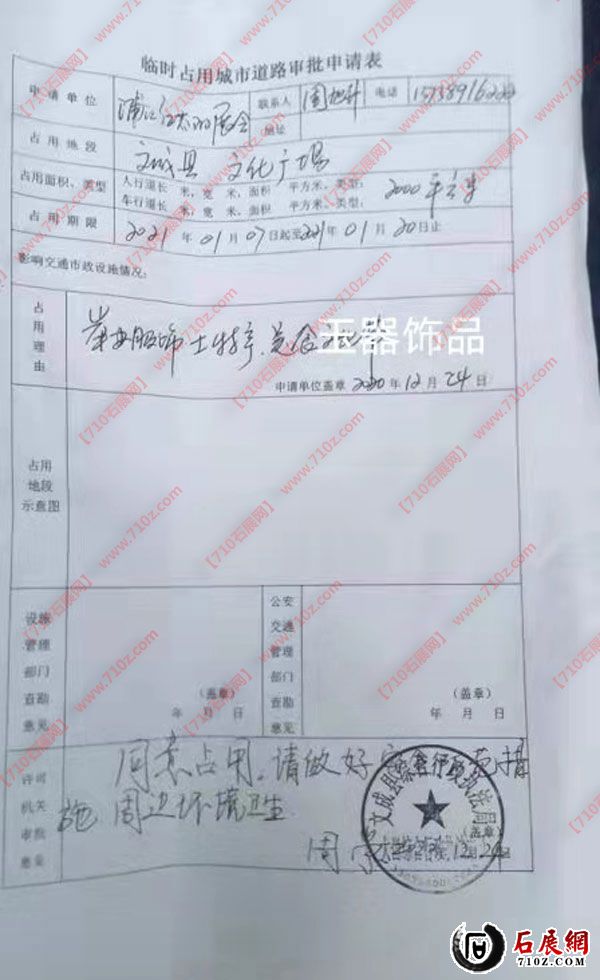 临时占用城市道路审批申请表
申请单位 联系人 电话
地址
占用地段 文成县 文化广场
占用面积、类型 人行道长 米,宽 米,面积 平方米,类型: 2000平方米
车行道长 米,宽 米,面积 平方米,类型:
占用期限 2021年01月07日起至2021年01月20日止
影响交通市政设施情况:
占用理由 服饰 土特产、美食 玉器饰品
申请单位盖章 2020年12月24日
占用地段示意图
设施管理部门查勘意见 (盖章) 年 月 日
公安交通管理部门查勘意见 (盖章) 年 月 日
许可机关审批意见 同意占用,请做好
施 周边环境卫生
周
文成县综合行政执法局
(盖章)
12月24日
【710石展网】www.710z.com
石展網
710Z.COM